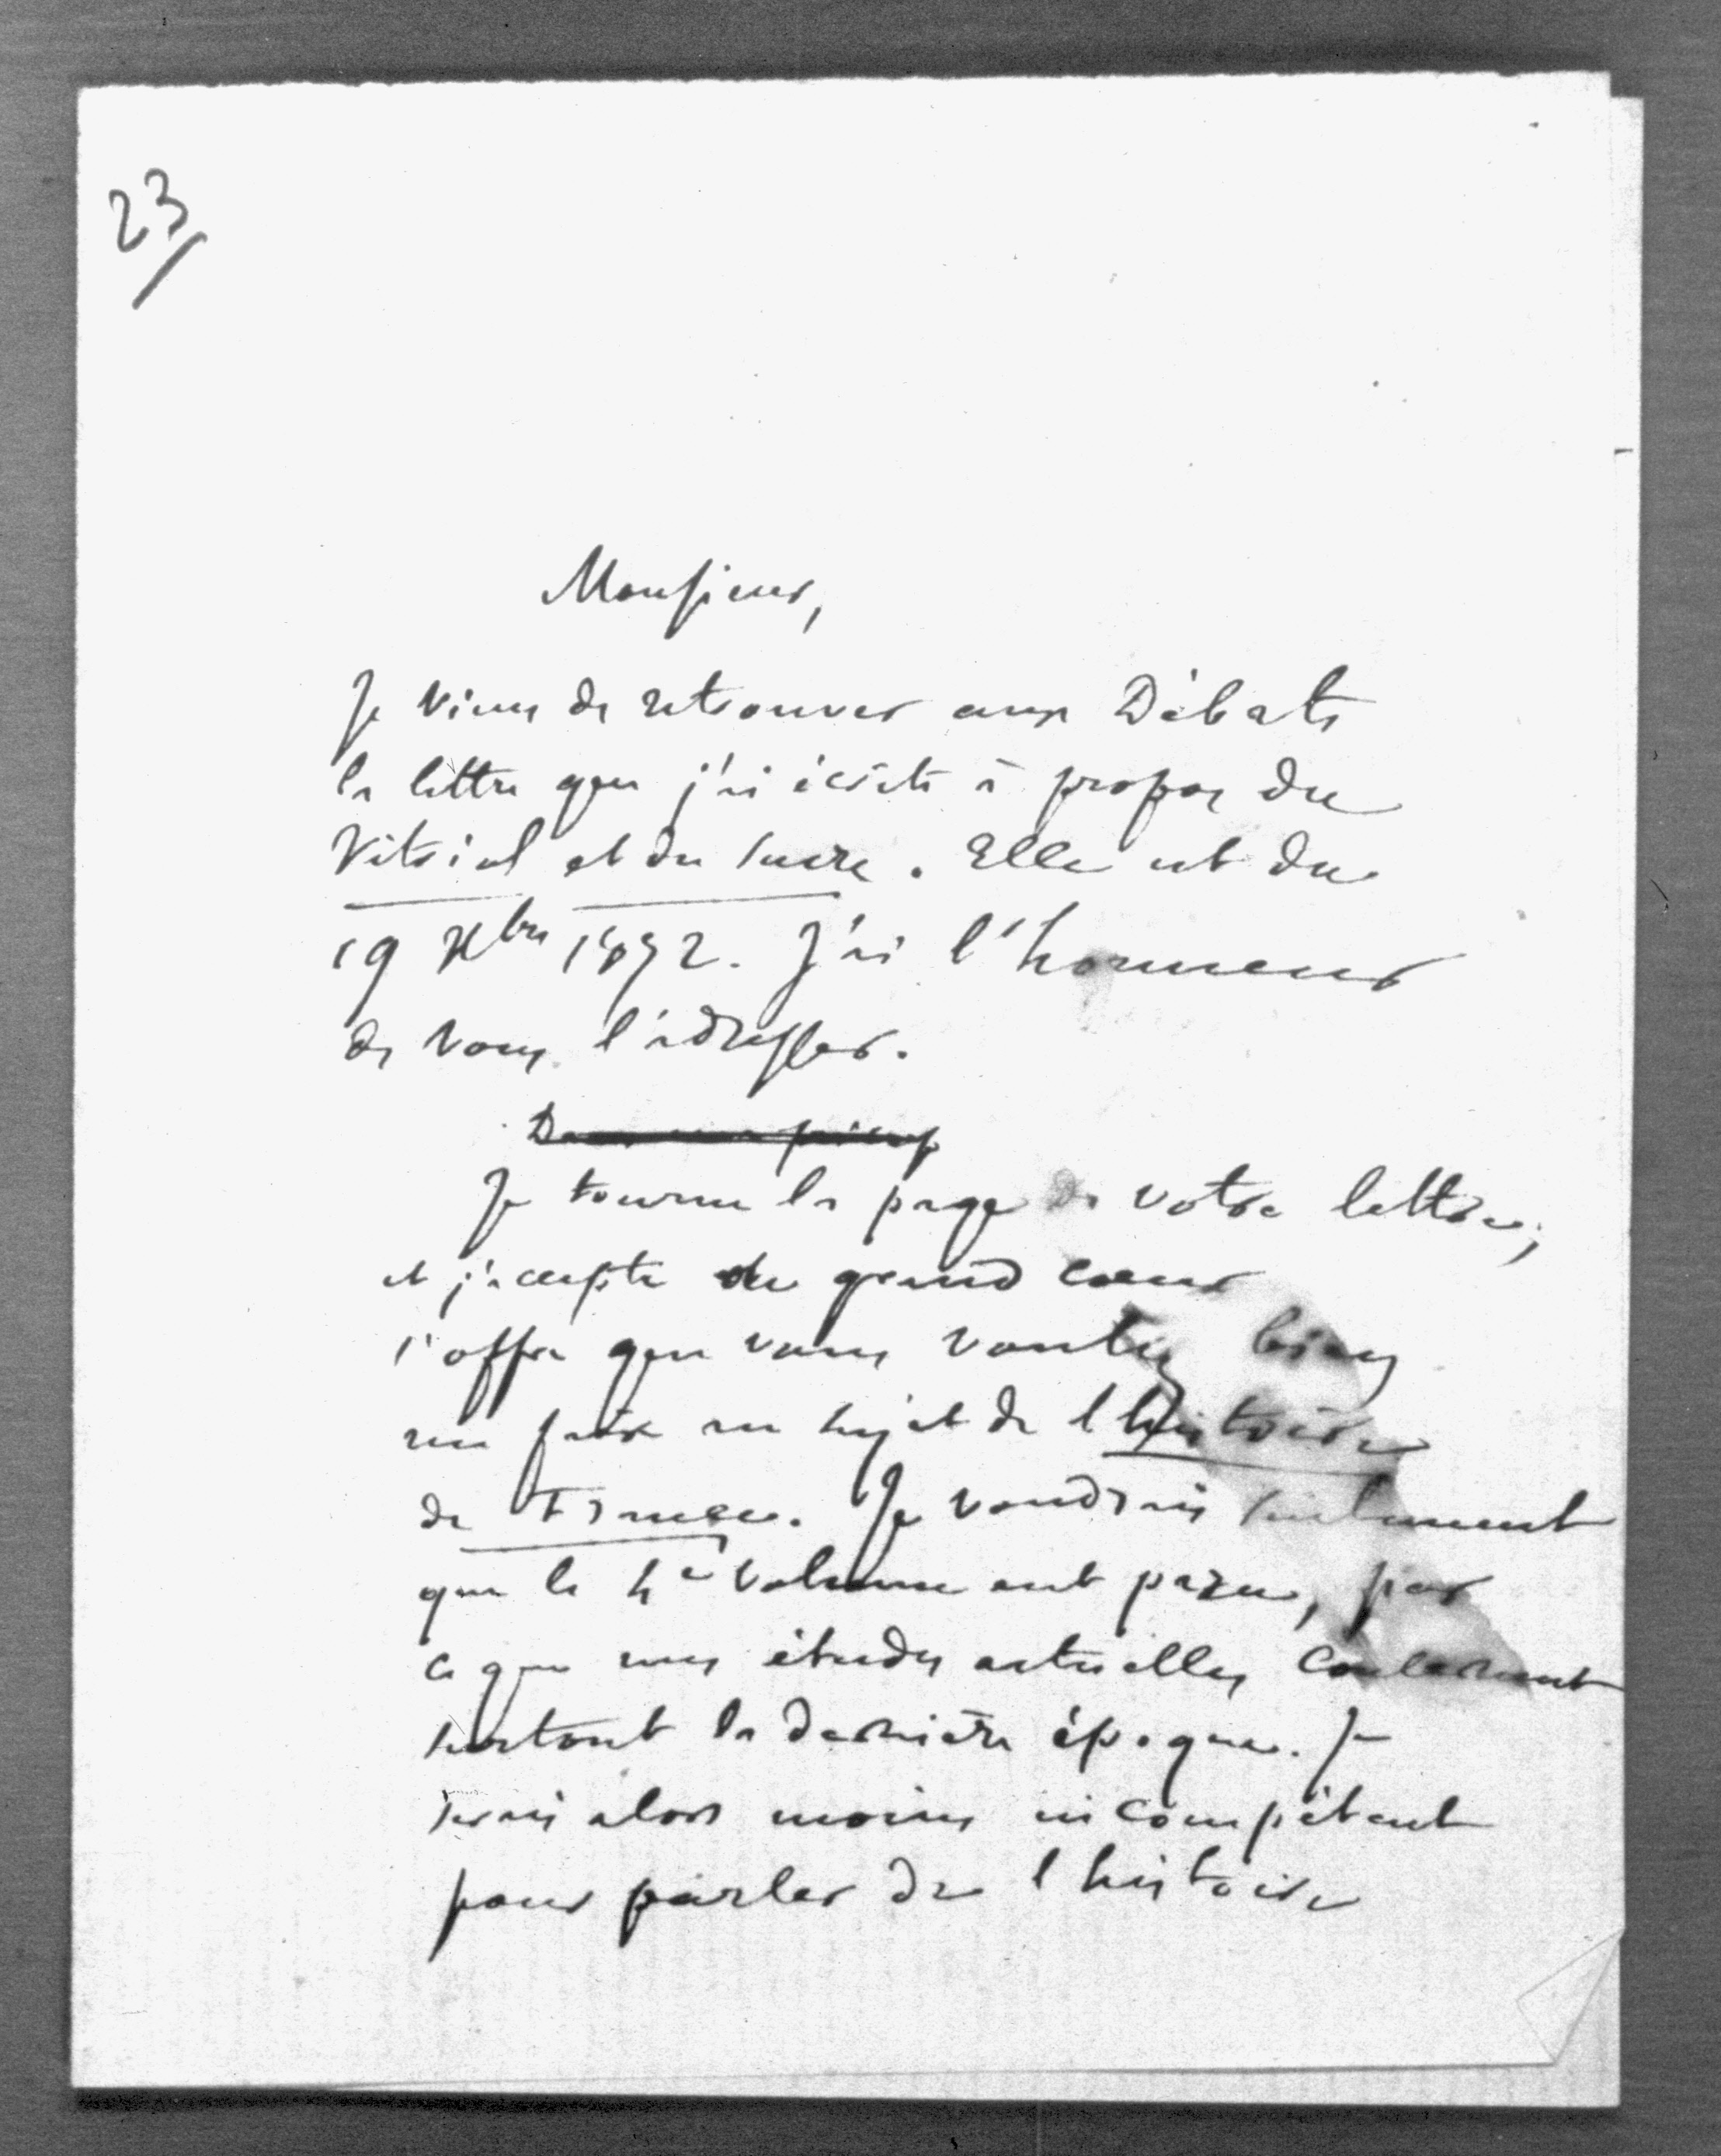 23
Monsieur,
Je viens de retrouver aux Débats
la lettre que j'ai écrite à propos du
Vitriol et du sucre. Elle est du
19 Xbre 1872. J'ai l'honneur
de vous l'adresser.
Je tourne la page de votre lettre,
et j'accepte de grand cœur
l'offre que vous voulez bien
me faire au sujet de l'histoire
de France. Je voudrais seulement
que le 4e volume eut paru, par
ce que mes études actuelles concernent
surtout la dernière époque. Je
serais alors moins incompétent
pour parler de l'histoire